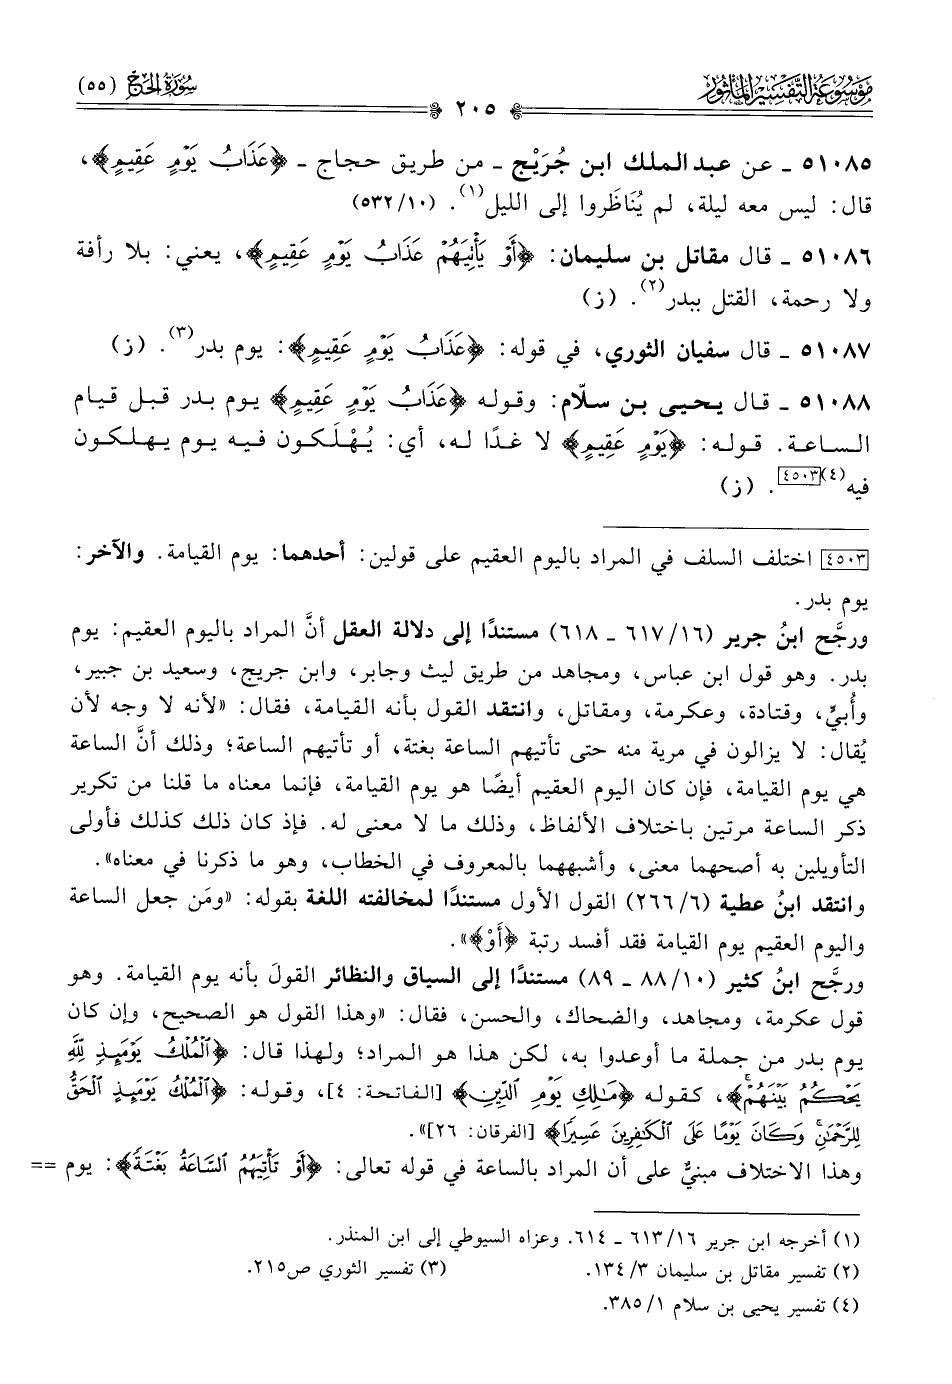 مَوْسُوعَة التَّفْسِير المَأْثُور
سُورَةُ الحَجّ (٥٥)
٢٠٥
٥١٠٨٥ ـ عن عبد الملك ابن جُرَيْج ـ من طريق حجاج ـ ﴿عَذَابُ يَوْمٍ عَقِيمٍ﴾،
قال: ليس معه ليلة، لم يُنَاظَروا إلى الليل(١). (٥٣٢/١٠)
٥١٠٨٦ ـ قال مقاتل بن سليمان: ﴿أَوْ يَأْتِيَهُمْ عَذَابُ يَوْمٍ عَقِيمٍ﴾، يعني: بلا رأفة
ولا رحمة، القتل ببدر(٢). (ز)
٥١٠٨٧ ـ قال سفيان الثوري، في قوله: ﴿عَذَابُ يَوْمٍ عَقِيمٍ﴾: يوم بدر(٣). (ز)
٥١٠٨٨ ـ قال يحيى بن سلّام: وقوله ﴿عَذَابُ يَوْمٍ عَقِيمٍ﴾ يوم بدر قبل قيام
الساعة. قوله: ﴿يَوْمٍ عَقِيمٍ﴾ لا غدًا له، أي: يُهْلَكون فيه يوم يهلكون
فيه(٤)[٤٥٠٣]. (ز)
[٤٥٠٣] اختلف السلف في المراد باليوم العقيم على قولين: أحدهما: يوم القيامة. والآخر:
يوم بدر.
ورجَّح ابنُ جرير (٦١٧/١٦ ـ ٦١٨) مستندًا إلى دلالة العقل أنَّ المراد باليوم العقيم: يوم
بدر. وهو قول ابن عباس، ومجاهد من طريق ليث وجابر، وابن جريج، وسعيد بن جبير،
وأُبيٍّ، وقتادة، وعكرمة، ومقاتل، وانتقد القول بأنه القيامة، فقال: «لأنه لا وجه لأن
يُقال: لا يزالون في مرية منه حتى تأتيهم الساعة بغتة، أو تأتيهم الساعة؛ وذلك أنَّ الساعة
هي يوم القيامة، فإن كان اليوم العقيم أيضًا هو يوم القيامة، فإنما معناه ما قلنا من تكرير
ذكر الساعة مرتين باختلاف الألفاظ، وذلك ما لا معنى له. فإذ كان ذلك كذلك فأولى
التأويلين به أصحهما معنى، وأشبههما بالمعروف في الخطاب، وهو ما ذكرنا في معناه».
وانتقد ابنُ عطية (٢٦٦/٦) القول الأول مستندًا لمخالفته اللغة بقوله: «ومَن جعل الساعة
واليوم العقيم يوم القيامة فقد أفسد رتبة ﴿أَوْ﴾».
ورجَّح ابنُ كثير (٨٨/١٠ ـ ٨٩) مستندًا إلى السياق والنظائر القولَ بأنه يوم القيامة. وهو
قول عكرمة، ومجاهد، والضحاك، والحسن، فقال: «وهذا القول هو الصحيح، وإن كان
يوم بدر من جملة ما أوعدوا به، لكن هذا هو المراد؛ ولهذا قال: ﴿ٱلْمُلْكُ يَوْمَئِذٍ لِلَّهِ
يَحْكُمُ بَيْنَهُمْ﴾، كقوله ﴿مَٰلِكِ يَوْمِ ٱلدِّينِ﴾ [الفاتحة: ٤]، وقوله: ﴿ٱلْمُلْكُ يَوْمَئِذٍ ٱلْحَقُّ
لِلرَّحْمَٰنِ وَكَانَ يَوْمًا عَلَى ٱلْكَٰفِرِينَ عَسِيرًا﴾ [الفرقان: ٢٦]».
وهذا الاختلاف مبنيٌّ على أن المراد بالساعة في قوله تعالى: ﴿أَوْ تَأْتِيَهُمُ ٱلسَّاعَةُ بَغْتَةً﴾: يوم ==
(١) أخرجه ابن جرير ٦١٣/١٦ ـ ٦١٤. وعزاه السيوطي إلى ابن المنذر.
(٢) تفسير مقاتل بن سليمان ١٣٤/٣. (٣) تفسير الثوري ص٢١٥.
(٤) تفسير يحيى بن سلام ٣٨٥/١.